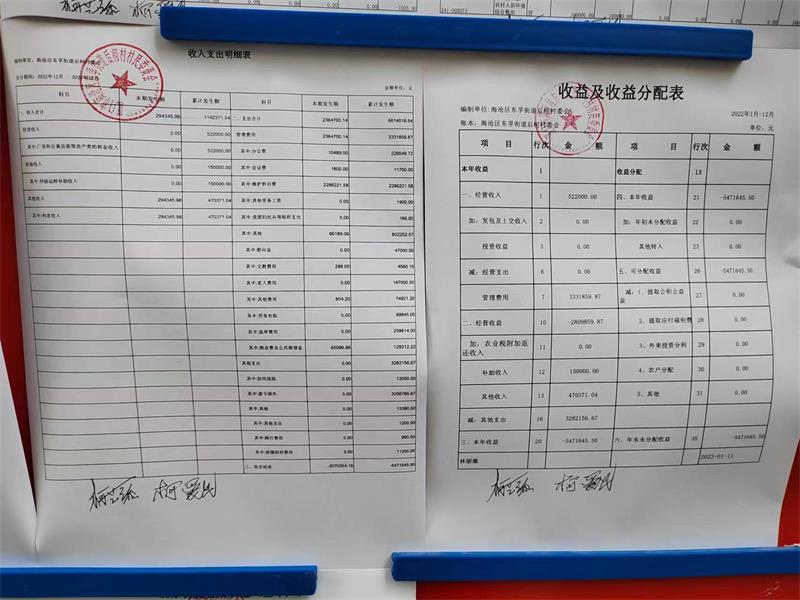 241-002073
收入支出明细表
编制单位：海沧区东孚街道后柯村村民委员会
会计期间：2022年12月 - 2022年12月
金额单位：元
科目 本期发生额 累计发生额 科目 本期发生额 累计发生额
一、收入合计 294345.98 1142371.04 二、支出合计 2364700.14 6614016.54
经营收入 0.00 522000.00 管理费用 2364700.14 3331859.87
0.00 522000.00 其中:办公费 10489.50 229549.72
补助收入 0.00 150000.00 其中:会议费 1600.00 11750.00
0.00 150000.00 其中:维护折旧费 2286221.58 2286221.58
其他收入 294345.98 470371.04 0.00 1900.00
其中:利息收入 294345.98 470371.04 0.00
其中:其他 66189.06 802252.57
其他支出 0.00 3282156.67
其中:慰问金 0.00 47000.00
其中:文教费用 288.00 4560.15
其中:老人费用 0.00 197000.00
其中:其他费用 804.20 74921.20
其中:劳务补贴 0.00 89845.00
其中:选举费用 0.00 259614.00
其中:物业费及公共维修金 65096.86 129312.22
0.00 12000.00
0.00
其中:其他 0.00 13390.00
其中:其他支出 0.00 1200.00
0.00
0.00 11200.00
三、收支结余 -2070354.16 -5471645.50
收益及收益分配表
编制单位:海沧区东孚街道后柯村委会
2022年1月-12月
账本：海沧区东孚街道后柯村委会
单位：元
项 目 行次 金 额 项 目 行次 金 额
本年收益 1 收益分配 13
一、经营收入 1 522000.00 四、本年收益 21 -5471645.50
加：发包及上交收入 2 0.00 加：年初未分配收益 22 0.00
投资收益 3 0.00 其他转入 23 0.00
减：经营支出 6 0.00 五、可分配收益 26 -5471645.50
管理费用 7 3331859.87 减：1、提取公积公益金 27 0.00
二、经营收益 10 -2809859.87 2、提取应付福利费 28 0.00
加：农业税附加返还收入 11 0.00 3、外来投资分利 29 0.00
补助收入 12 150000.00 4、农户分配 30 0.00
其他收入 13 470371.04 5、其他 31 0.00
减：其他支出 16 3282156.67
三、本年收益 20 -5471645.50 六、年末未分配收益 35 -5471645.50
2023-01-11